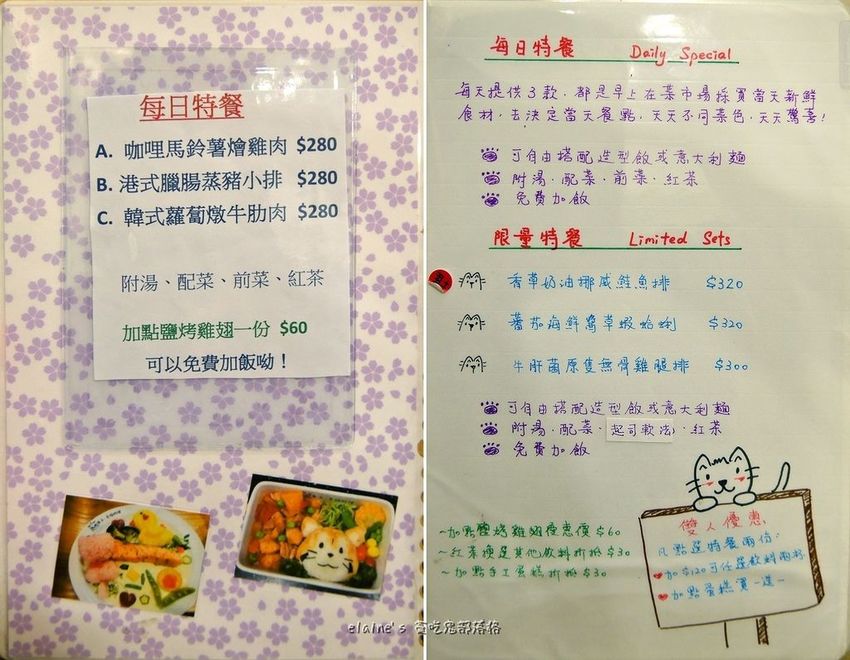 每日特餐
A. 咖哩馬鈴薯燴雞肉 $280
B. 港式臘腸蒸豬小排 $280
C. 韓式蘿蔔燉牛肋肉 $280
附湯、配菜、前菜、紅茶
加點鹽烤雞翅一份 $60
可以免費加飯呦！
每日特餐 Daily Special
每天提供3款，都是早上在菜市場採買當天新鮮
食材，去決定當天餐點，天天不同菜色，天天驚喜！
可自由搭配造型飯或意大利麵
附湯．配菜．前菜．紅茶
免費加飯
限量特餐 Limited Sets
香草奶油挪威鮭魚排 $320
蕃茄海鮮草蝦蛤蜊 $320
牛肝菌原隻無骨雞腿排 $300
可自由搭配造型飯或意大利麵
附湯．配菜．起司軟法．紅茶
免費加飯
~加點鹽烤雞翅優惠價$60
~紅茶換其他飲料折抵$30
~加點手工蛋糕折抵$30
雙人優惠
凡點選特餐兩份：
加$120可任選飲料兩杯
加點蛋糕買一送一
elaine's 貪吃鬼部落格